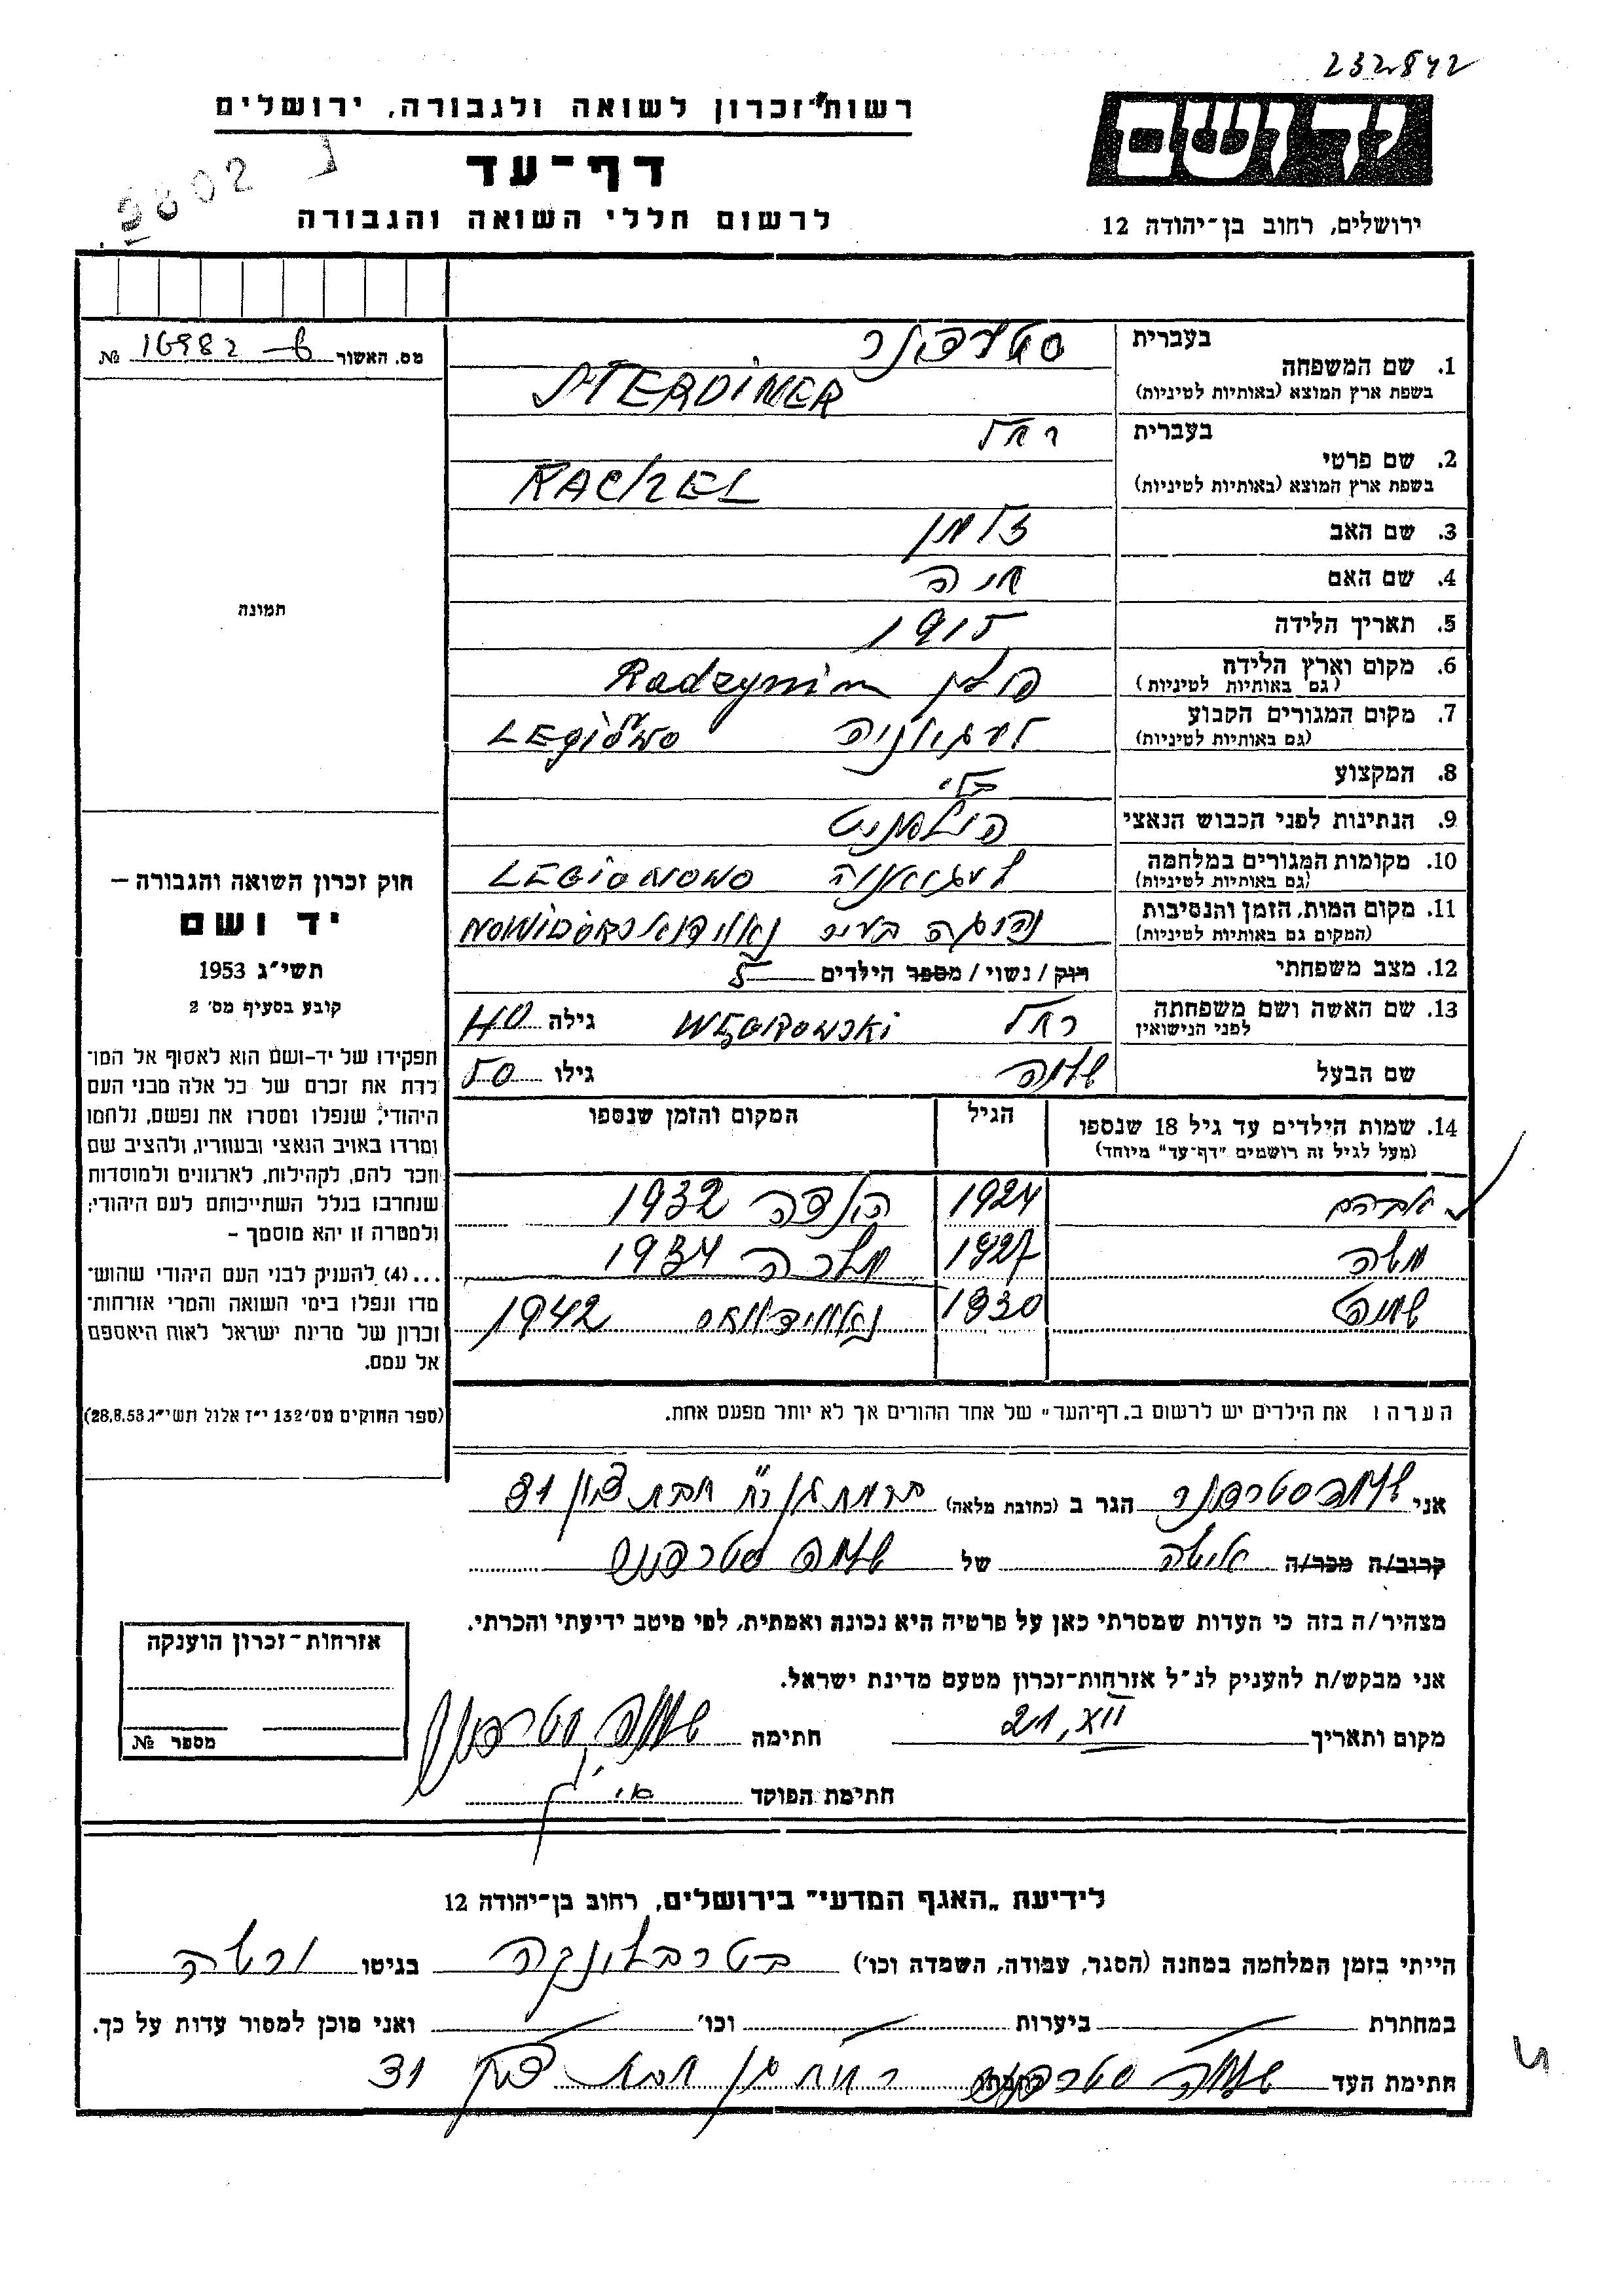 232842
רשות זכרון לשואה ולגבורה, ירושלים
דף-עד
לרשום חללי השואה והגבורה
ידושם
ירושלים, רחוב בן-יהודה 12
5802
מס. האשור 16982 №
בעברית
1. שם המשפחה
בשפת ארץ המוצא (באותיות לטיניות) STERDINER
בעברית רחל
2. שם פרטי
בשפת ארץ המוצא (באותיות לטיניות) RACHEL
3. שם האב זלמן
4. שם האם חיה
5. תאריך הלידה 1915
6. מקום וארץ הלידה פולין Radzymin
(גם באותיות לטיניות)
7. מקום המגורים הקבוע
(גם באותיות לטיניות)
8. המקצוע
9. הנתינות לפני הכבוש הנאצי
10. מקומות המגורים במלחמה LEGIONOWO
(גם באותיות לטיניות)
11. מקום המות, הזמן והנסיבות
(המקום גם באותיות לטיניות)
12. מצב משפחתי רוק / נשוי / מספר הילדים 5
13. שם האשה ושם משפחתה רחל גילה 40
לפני הנישואין
שם הבעל שלמה גילו 50
14. שמות הילדים עד גיל 18 שנספו הגיל המקום והזמן שנספו
(מעל לגיל זה רושמים "דף-עד" מיוחד)
אברהם 1924 1932
משה 1927 1934
1930 1942
הערה ו את הילדים יש לרשום ב"דף-העד" של אחד ההורים אך לא יותר מפעם אחת.
תמונה
חוק זכרון השואה והגבורה —
יד ושם
תשי"ג 1953
קובע בסעיף מס' 2
תפקידו של יד-ושם הוא לאסוף אל המו־
לדת את זכרם של כל אלה מבני העם
היהודי, שנפלו ומסרו את נפשם, נלחמו
ומרדו באויב הנאצי ובעוזריו, ולהציב שם
וזכר להם, לקהילות, לארגונים ולמוסדות
שנחרבו בגלל השתייכותם לעם היהודי;
ולמטרה זו יהא מוסמך –
...(4) להעניק לבני העם היהודי שהוש־
מדו ונפלו בימי השואה והמרי אזרחות־
זכרון של מדינת ישראל לאות היאספם
אל עמם.
(ספר החוקים מס' 132 י"ז אלול תשי"ג 28.8.53)
אני שלמה סטרדינר הגר ב (כתובת מלאה) ברמת גן רח' חבת ציון 31
קרוב/ה מכר/ה אישה של שלמה סטרדינר
מצהיר/ה בזה כי העדות שמסרתי כאן על פרטיה היא נכונה ואמתית, לפי מיטב ידיעתי והכרתי.
אני מבקש/ת להעניק לנ"ל אזרחות-זכרון מטעם מדינת ישראל.
מקום ותאריך 21, XII חתימה
חתימת הפוקד
אזרחות-זכרון הוענקה
מספר №
לידיעת "האגף המדעי" בירושלים, רחוב בן-יהודה 12
הייתי בזמן המלחמה במחנה (הסגר, עבודה, השמדה וכו') בטרבלינקה בגיטו ורשה
במחתרת ביערות וכו' ואני מוכן למסור עדות על כך.
חתימת העד שלמה סטרדינר רמת גן חבת ציון 31